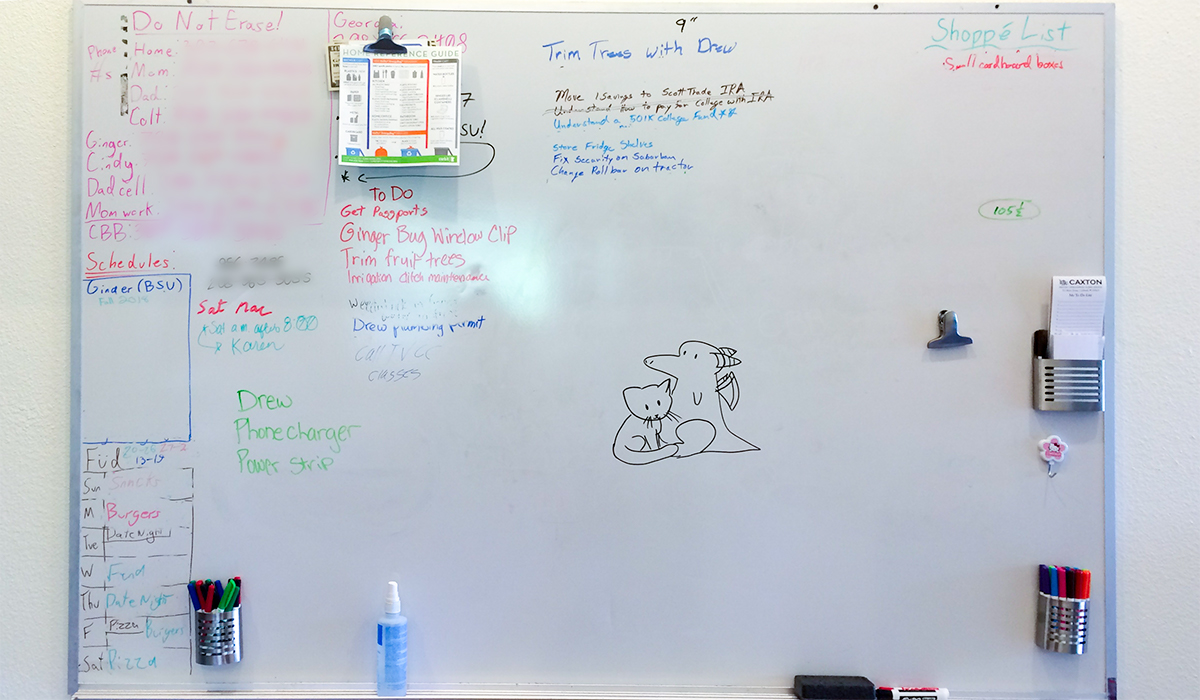 Do Not Erase!
Phone
#s
Home:
Mom:
Dad:
Colt:
Ginger:
Cindy:
Dad cell
Mom work:
CBB:
Schedules:
Ginger (BSU)
Sat Mac
*Sat a.m. after 8:00
* Karen
Drew
Phone charger
Power strip
Füd
13-19
Sun Snacks
M Burgers
Tue Date Night
W Fend
Thu Date Night
F Pizza Burgers
Sat Pizza
Georgia:
HOME REFERENCE GUIDE
7
BSU!
*
To Do
Get Passports
Ginger Bug Window Clip
Trim fruit trees
Irrigation ditch maintenance
Drew plumbing permit
Call TVCC
classes
9"
Trim Trees with Drew
Move 1 Savings to Scott Trade IRA
Understand how to pay for college with IRA
Understand a 501K College Fund **
Store Fridge Shelves
Fix Security on Suburban
Change Roll bar on tractor
Shoppé List
·Small cardboard boxes
105 ½
CAXTON